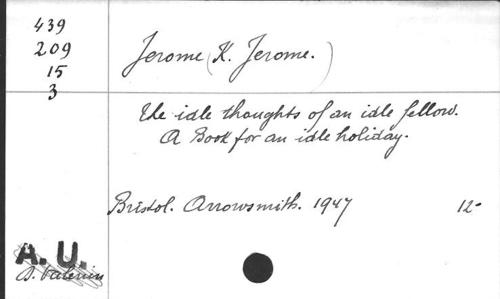 439
209
15
3
Jerome (K. Jerome.)
The idle thoughts of an idle fellow.
A Book for an idle holiday.
Bristol. Arrowsmith. 1947 12-
A. U.